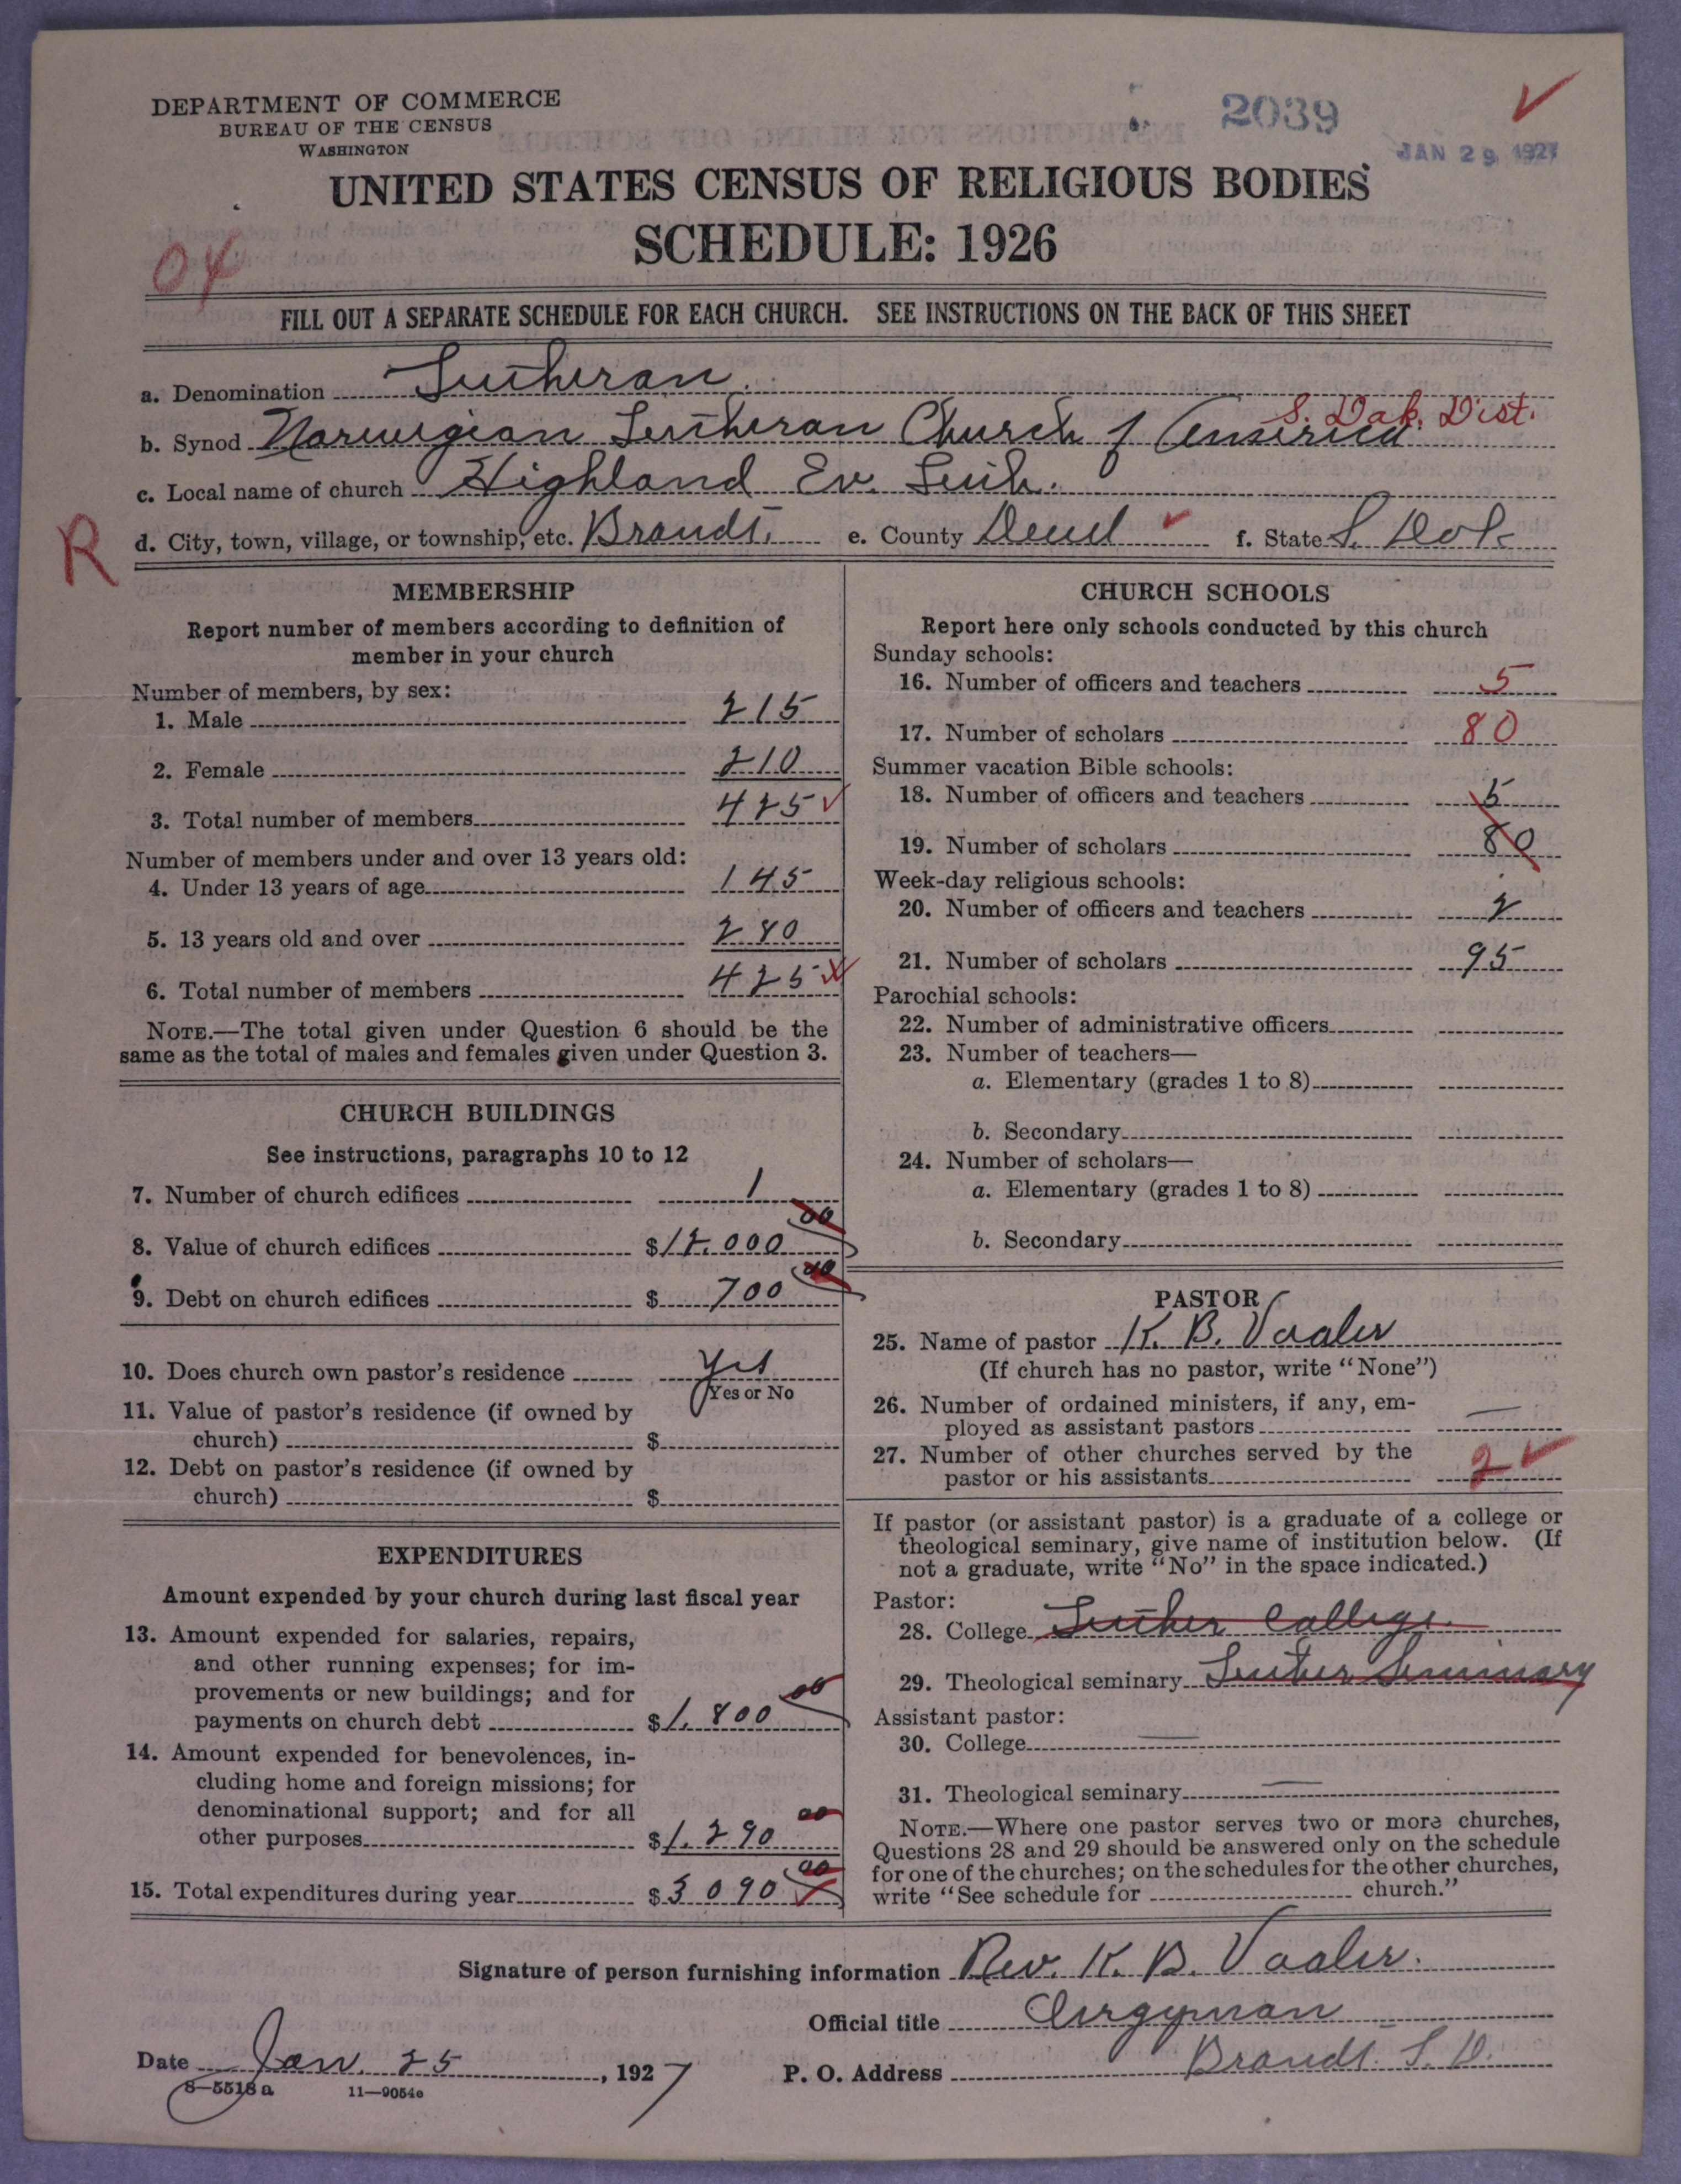 DEPARTMENT OF COMMERCE
BUREAU OF THE CENSUS
WASHINGTON
2039
JAN 29 1927
UNITED STATES CENSUS OF RELIGIOUS BODIES
SCHEDULE: 1926
04
FILL OUT A SEPARATE SCHEDULE FOR EACH CHURCH. SEE INSTRUCTIONS ON THE BACK OF THIS SHEET
a. Denomination Lutheran.
S. Dak. Dist.
b. Synod Norwegian Lutheran Church of America
c. Local name of church Highland Ev. Luth.
R
d. City, town, village, or township, etc. Brandt, e. County Deuel f. State S. Dak
MEMBERSHIP
Report number of members according to definition of
member in your church
Number of members, by sex:
1. Male 215
2. Female 210
3. Total number of members 425
Number of members under and over 13 years old:
4. Under 13 years of age 145
5. 13 years old and over 280
6. Total number of members 425
NOTE.—The total given under Question 6 should be the
same as the total of males and females given under Question 3.
CHURCH BUILDINGS
See instructions, paragraphs 10 to 12
7. Number of church edifices 1
8. Value of church edifices $12.000 00
9. Debt on church edifices $ 700 00
10. Does church own pastor's residence Yes
Yes or No
11. Value of pastor's residence (if owned by
church) $
12. Debt on pastor's residence (if owned by
church) $
EXPENDITURES
Amount expended by your church during last fiscal year
13. Amount expended for salaries, repairs,
and other running expenses; for im-
provements or new buildings; and for
payments on church debt $1.800 00
14. Amount expended for benevolences, in-
cluding home and foreign missions; for
denominational support; and for all
other purposes $1.290 00
15. Total expenditures during year $3090 00
CHURCH SCHOOLS
Report here only schools conducted by this church
Sunday schools:
16. Number of officers and teachers 5
17. Number of scholars 80
Summer vacation Bible schools:
18. Number of officers and teachers 5
19. Number of scholars 80
Week-day religious schools:
20. Number of officers and teachers 2
21. Number of scholars 95
Parochial schools:
22. Number of administrative officers
23. Number of teachers—
a. Elementary (grades 1 to 8)
b. Secondary
24. Number of scholars—
a. Elementary (grades 1 to 8)
b. Secondary
PASTOR
25. Name of pastor K. B. Vaaler
(If church has no pastor, write "None")
26. Number of ordained ministers, if any, em-
ployed as assistant pastors —
27. Number of other churches served by the
pastor or his assistants 2
If pastor (or assistant pastor) is a graduate of a college or
theological seminary, give name of institution below. (If
not a graduate, write "No" in the space indicated.)
Pastor:
28. College Luther College.
29. Theological seminary Luther Seminary
Assistant pastor:
30. College —
31. Theological seminary —
NOTE.—Where one pastor serves two or more churches,
Questions 28 and 29 should be answered only on the schedule
for one of the churches; on the schedules for the other churches,
write "See schedule for church."
Signature of person furnishing information Rev. K. B. Vaaler.
Official title Clergyman
Date Jan. 25, 1927 P. O. Address Brandt. S. D.
8—5518a 11—9054e